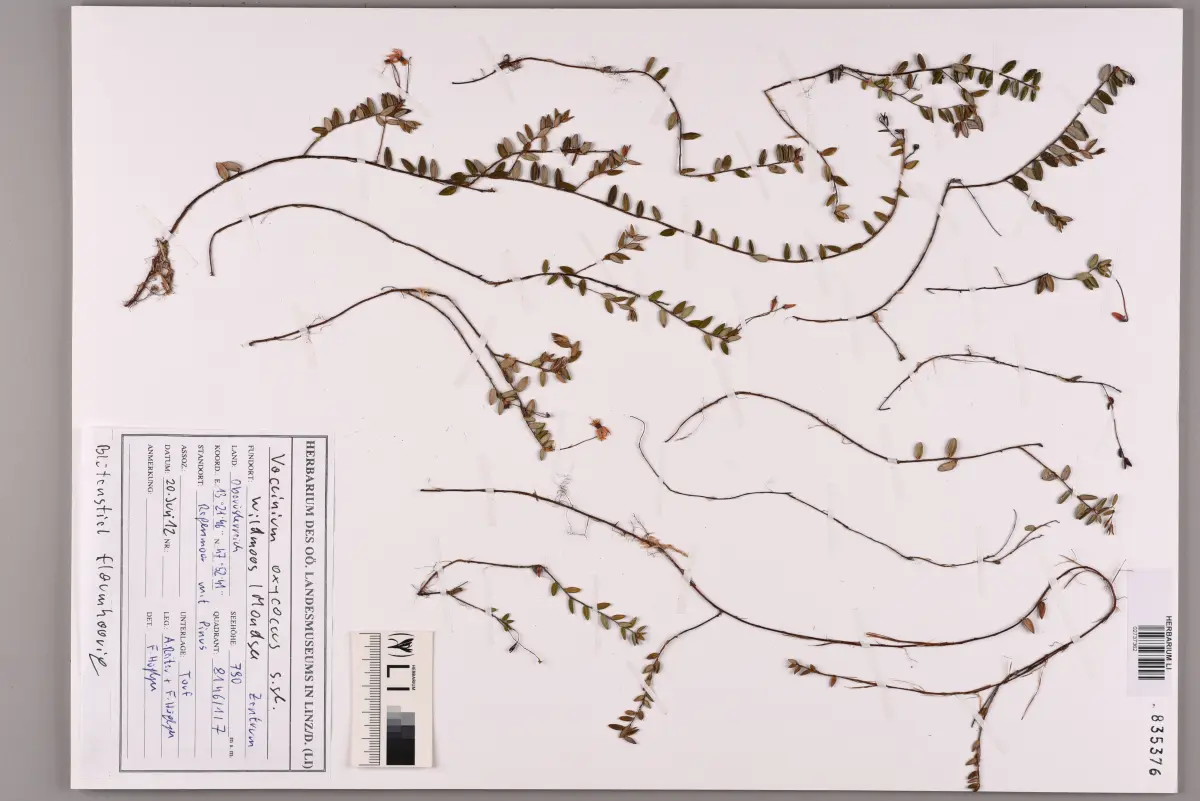 HERBARIUM DES OÖ. LANDESMUSEUMS IN LINZ/D. (LI)
Vaccinium oxycoccus s.str.
FUNDORT: Wildmoos / Mondsee Zentrum
LAND: Oberösterreich SEEHÖHE: 790 m s. m.
KOORD. E: 13-21-46 N: 47-52-41 QUADRANT: 8146/1/7
STANDORT: Regenmoor mit Pinus
ASSOZ. UNTERLAGE: Torf
DATUM: 20. Juni 12 NR.: LEG.
ANMERKUNG: DET.
Blütenstiel flaumhaarig
HERBARIUM
LI
HERBARIUM LI
835376